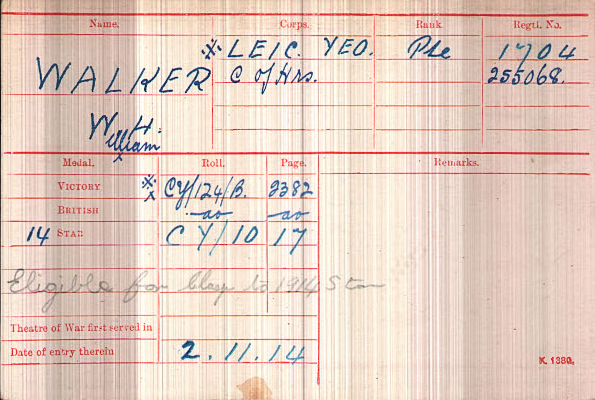 Name. Corps. Rank. Regtl. No.
※ LEIC. YEO. Pte 1704
WALKER C of Hrs. 255068.
W H.
William
Medal. Roll. Page. Remarks.
VICTORY ※ CY/124/B. 2382
BRITISH -do- -do-
14 STAR CY/10 17
Eligible for Clasp to 1914 Star
Theatre of War first served in
Date of entry therein 2.11.14
K. 1380.